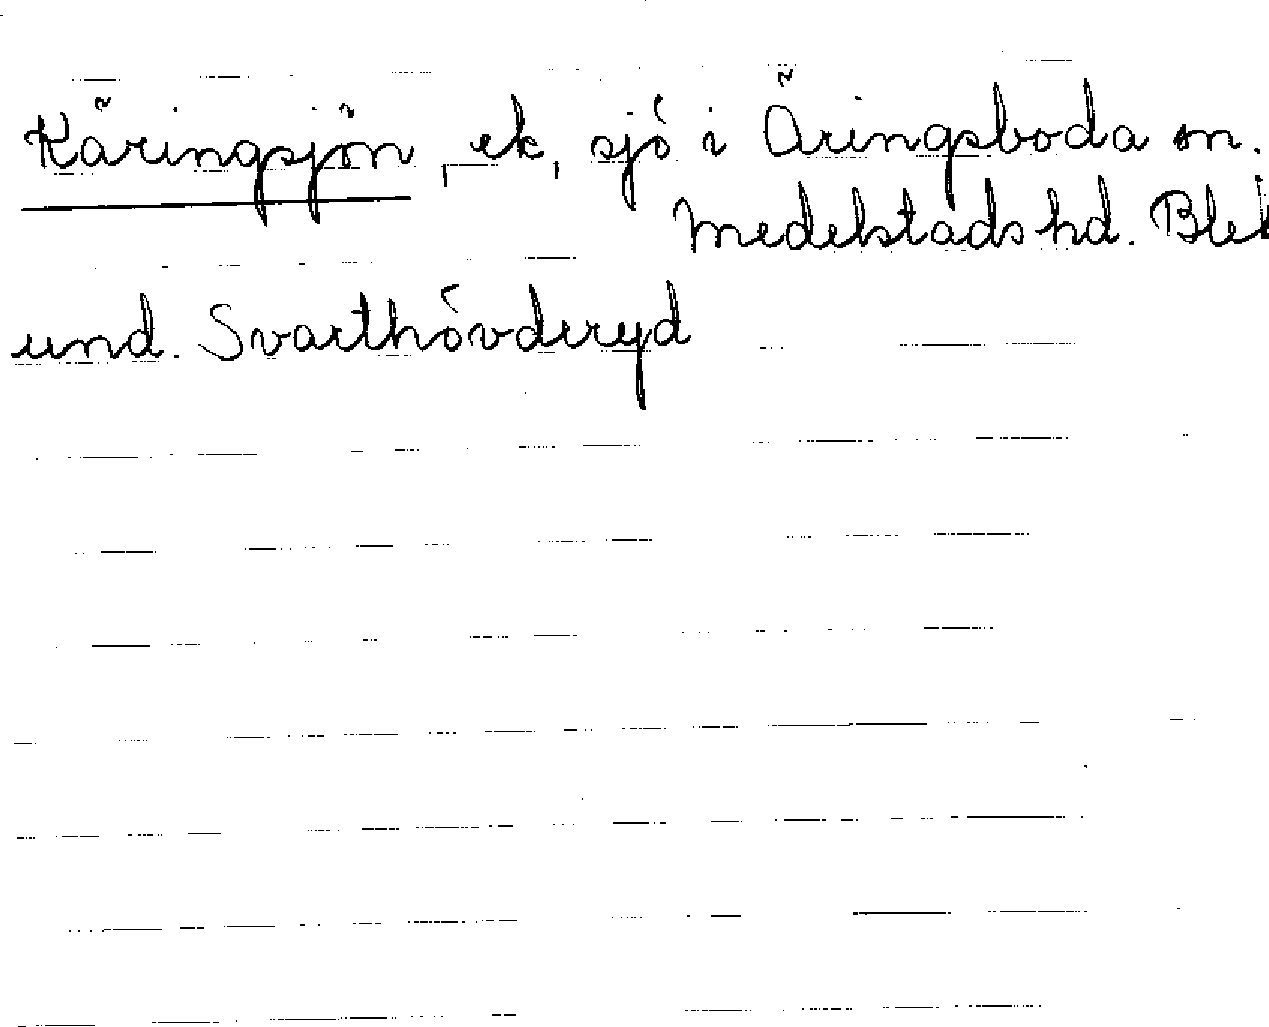 Käringsjön, ek, sjö i Äringsboda sn.
Medelstads hd. Blek
und. Svarthövderyd